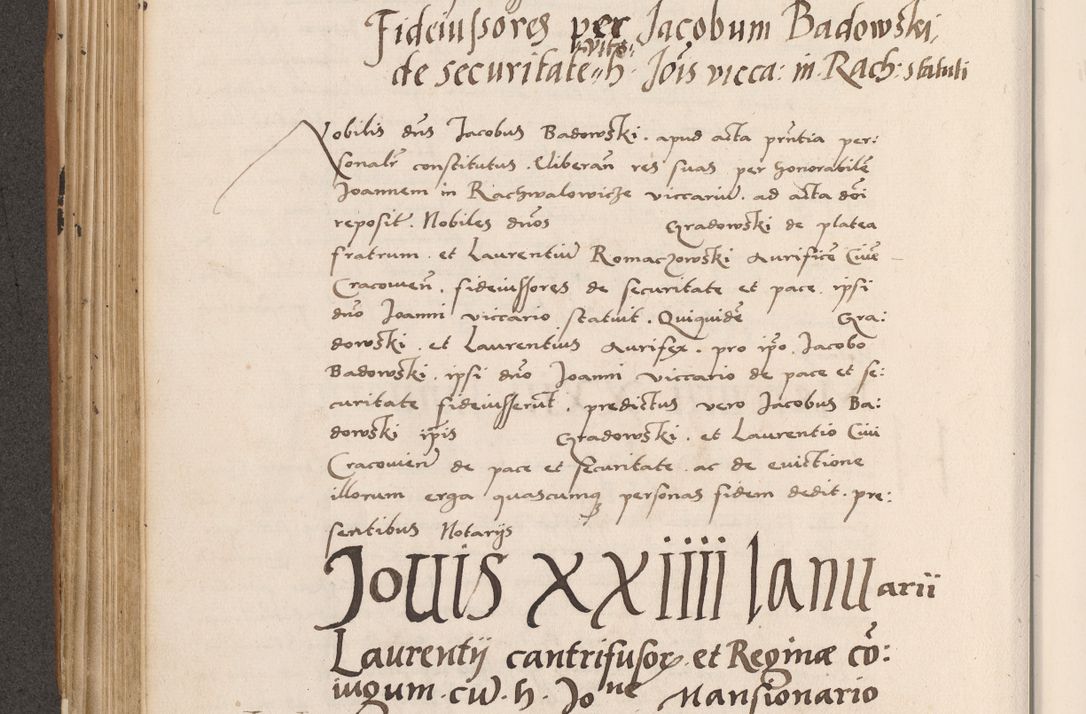 Fideiussores per Jacobum Badowski
de securitate vite h. Jois vicca: in Rach: statuti
Nobilis dns Jacobus Badowski. apud acta pntia per:
sonalr constitutus. Eliberan res suas per honorabile
Joannem in Rachwalowicze viccariu. ad acta doi
reposit. Nobiles dnos Gradowski de platea
fratrum. et Laurentiu Romaczowski Aurifice Cive
Cracovien. fideiussores de securitate et pace. ipsi
dno Joanni viccario statuit. Quiquide Gra:
dowski. et Laurentius Aurifex. pro ipo. Jacobo
Badowski. ipsi dno Joanni viccario de pace et se:
curitate fideiusserut. predictus vero Jacobus Ba:
dowski ipis Gradowski. et Laurentio Civi
Cracovien de pace et securitate. ac de evictione
illorum erga quascumq personas fidem dedit. pre:
sentibus Notarijs
Jovis XXIIII Ianuarii
Laurentij cantrifusor. et Reginæ co:
iugum. cu. h. Jone Mansionario